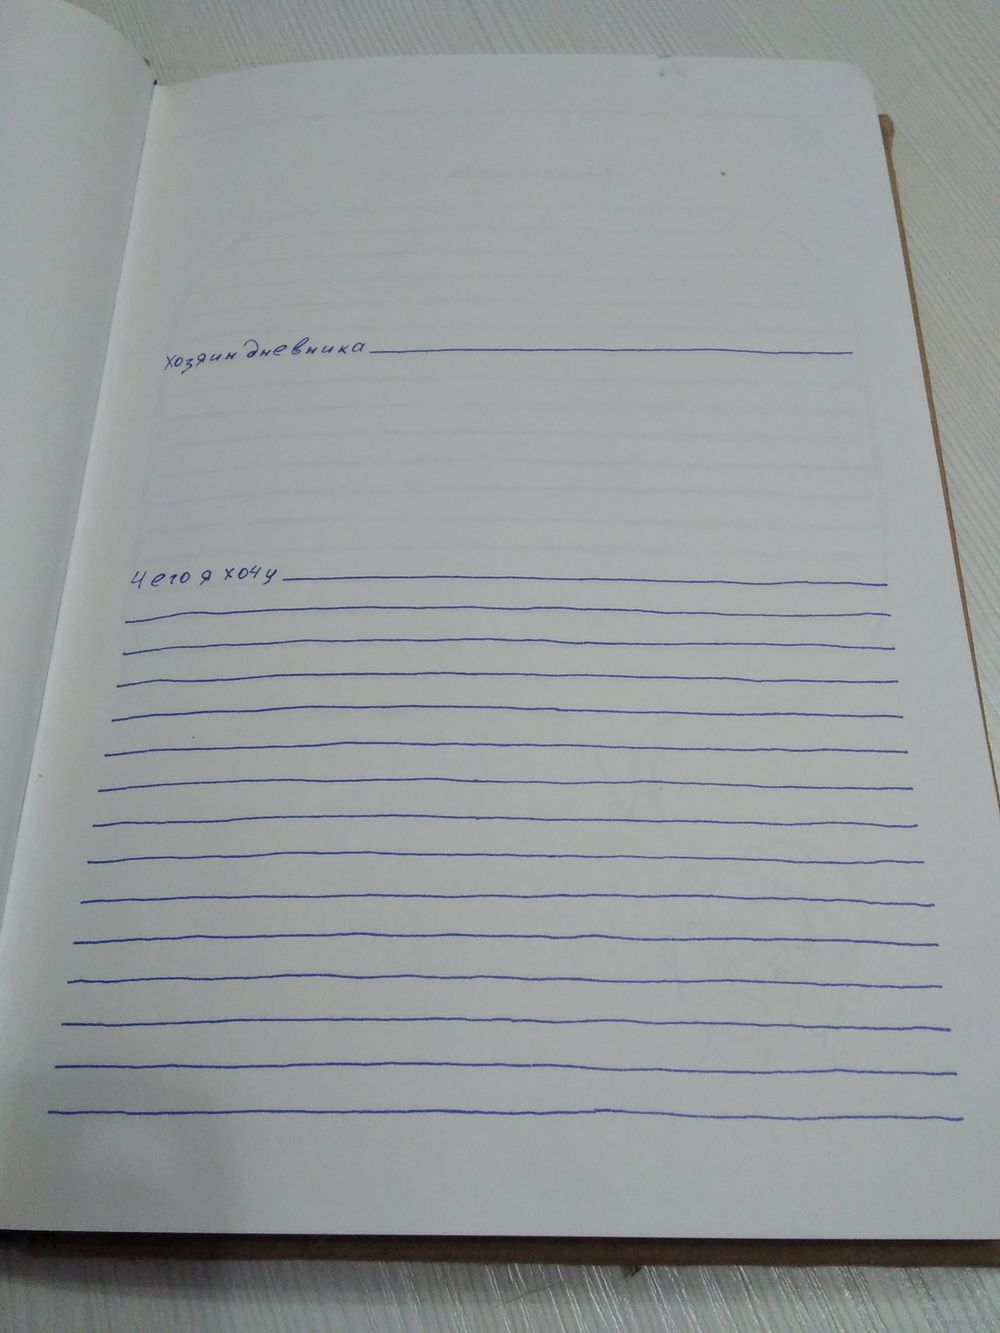 хозяин дневника
Чего я хочу